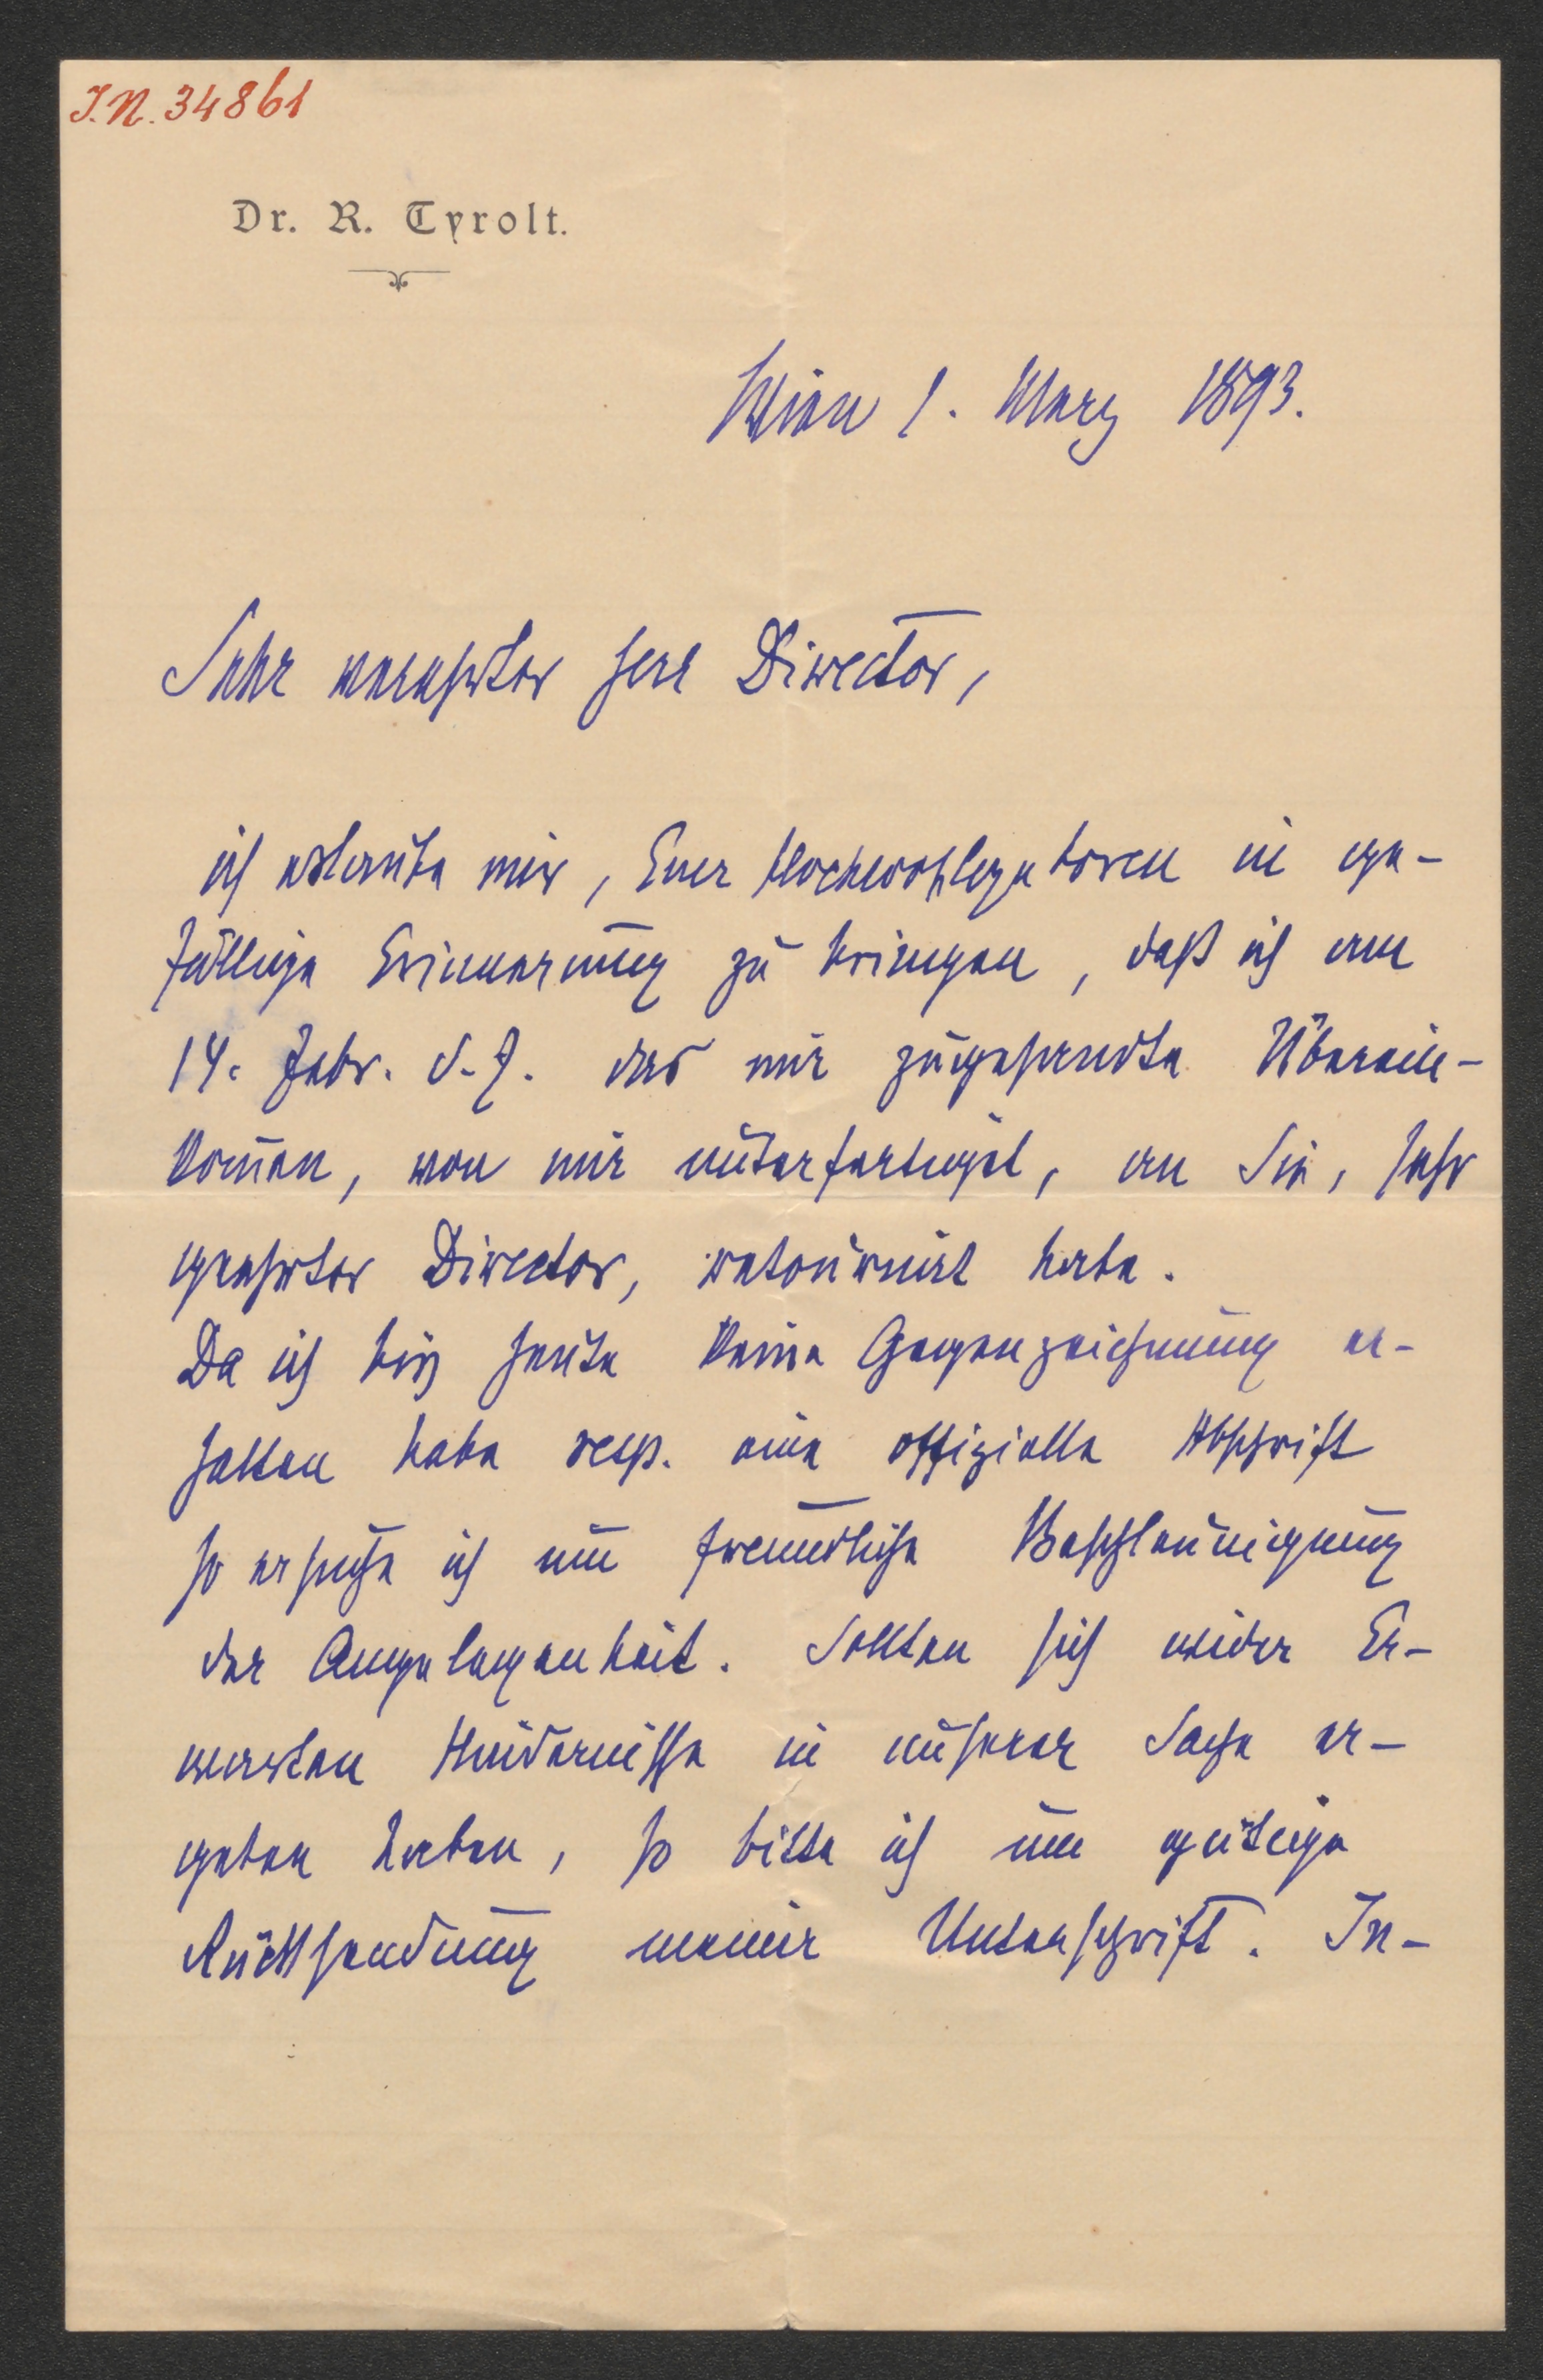 J.N. 34861
Dr. R. Tyrolt.
Wien 1. März 1893.
Sehr verehrter Herr Director,
ich erlaube mir, Euer Hochwohlgeboren in ge-
fällige Erinnerung zu bringen, daß ich am
14. Febr. d. J. das mir zugesandte Überein-
kom̄en, von mir unterfertiget, an Sie, sehr
geehrter Director, retournirt habe.
Da ich bis heute keine Gegenzeichnung er-
halten habe resp. eine offizielle Abschrift
so ersuche ich um freundliche Beschleunigung
der Angelegenheit. Sollten sich wider Er-
warten Hindernisse in unserer Sache er-
geben haben, so bitte ich um gütige
Rücksendung meiner Unterschrift. In-